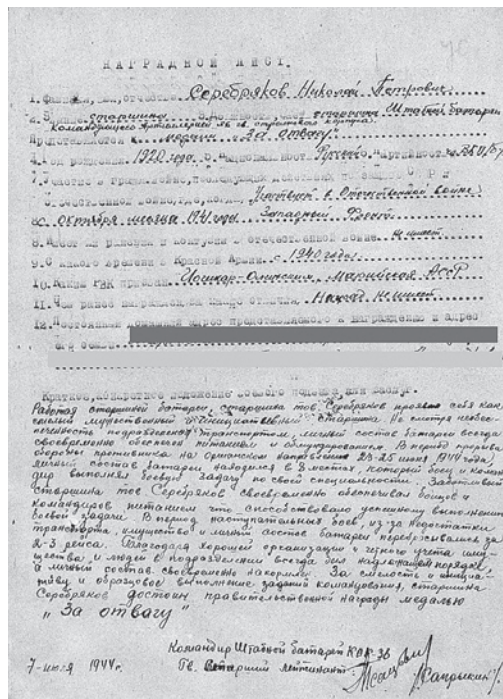 НАГРАДНОЙ ЛИСТ.
1. Фамилия, имя, отчество Серебряков Николай Петрович
2. Звание старшина 3. Должность, часть старшина Штабной батареи
Командующего Артиллерией 36 гв. стрелкового корпуса.
Представляется к медали "За отвагу"
4. Год рождения 1920 года 5. Национальность Русский 6. Партийность
7. Участие в гражданской войне, последующих действиях по защите СССР и
отечественной войне /где, когда/ Участвует в Отечественной войне
с октября месяца 1941 года Западный Фронт
8. Имеет ли ранения и контузии в отечественной войне не имеет
9. С какого времени в Красной Армии с 1940 года
10. Каким РВК призван Йошкар-Олинским Марийской АССР
11. Чем ранее награжден /за какие отличия/ Наград не имеет
12. Постоянный домашний адрес представляемого к награждению и адрес
его семьи
Краткое, конкретное изложение боевого подвига или заслуг.
Работая старшиной батареи, старшина тов. Серебряков проявил себя как
смелый мужественный и инициативный старшина. Не смотря на
подразделения транспортом, личный состав батареи всегда
своевременно обеспечен питанием и обмундированием. В период прорыва
обороны противника на Оршанском направлении 23-25 июня 1944 года,
личный состав батареи находился в 8 местах, который боец и коман-
дир выполнял боевую задачу по своей специальности. Заботливый
старшина тов Серебряков своевременно обеспечивал бойцов и
командиров питанием что способствовало успешному выполнению
боевой задачи. В период наступательных боев, из-за недостатки
транспорта, имущество и личный состав батареи перебрасывался за
2-3 рейса. Благодаря хорошей организации и четкого учета иму-
щества и людей в подразделении всегда был надлежащий порядок,
а личный состав своевременно накормлен. За смелость и инициа-
тиву и образцовое выполнение заданий командования, старшина
Серебряков достоин правительственной награды медалью
"За отвагу"
Командир Штабной батареи
Гв. Старший лейтенант
7-июля 1944г. /Сапрыкин/